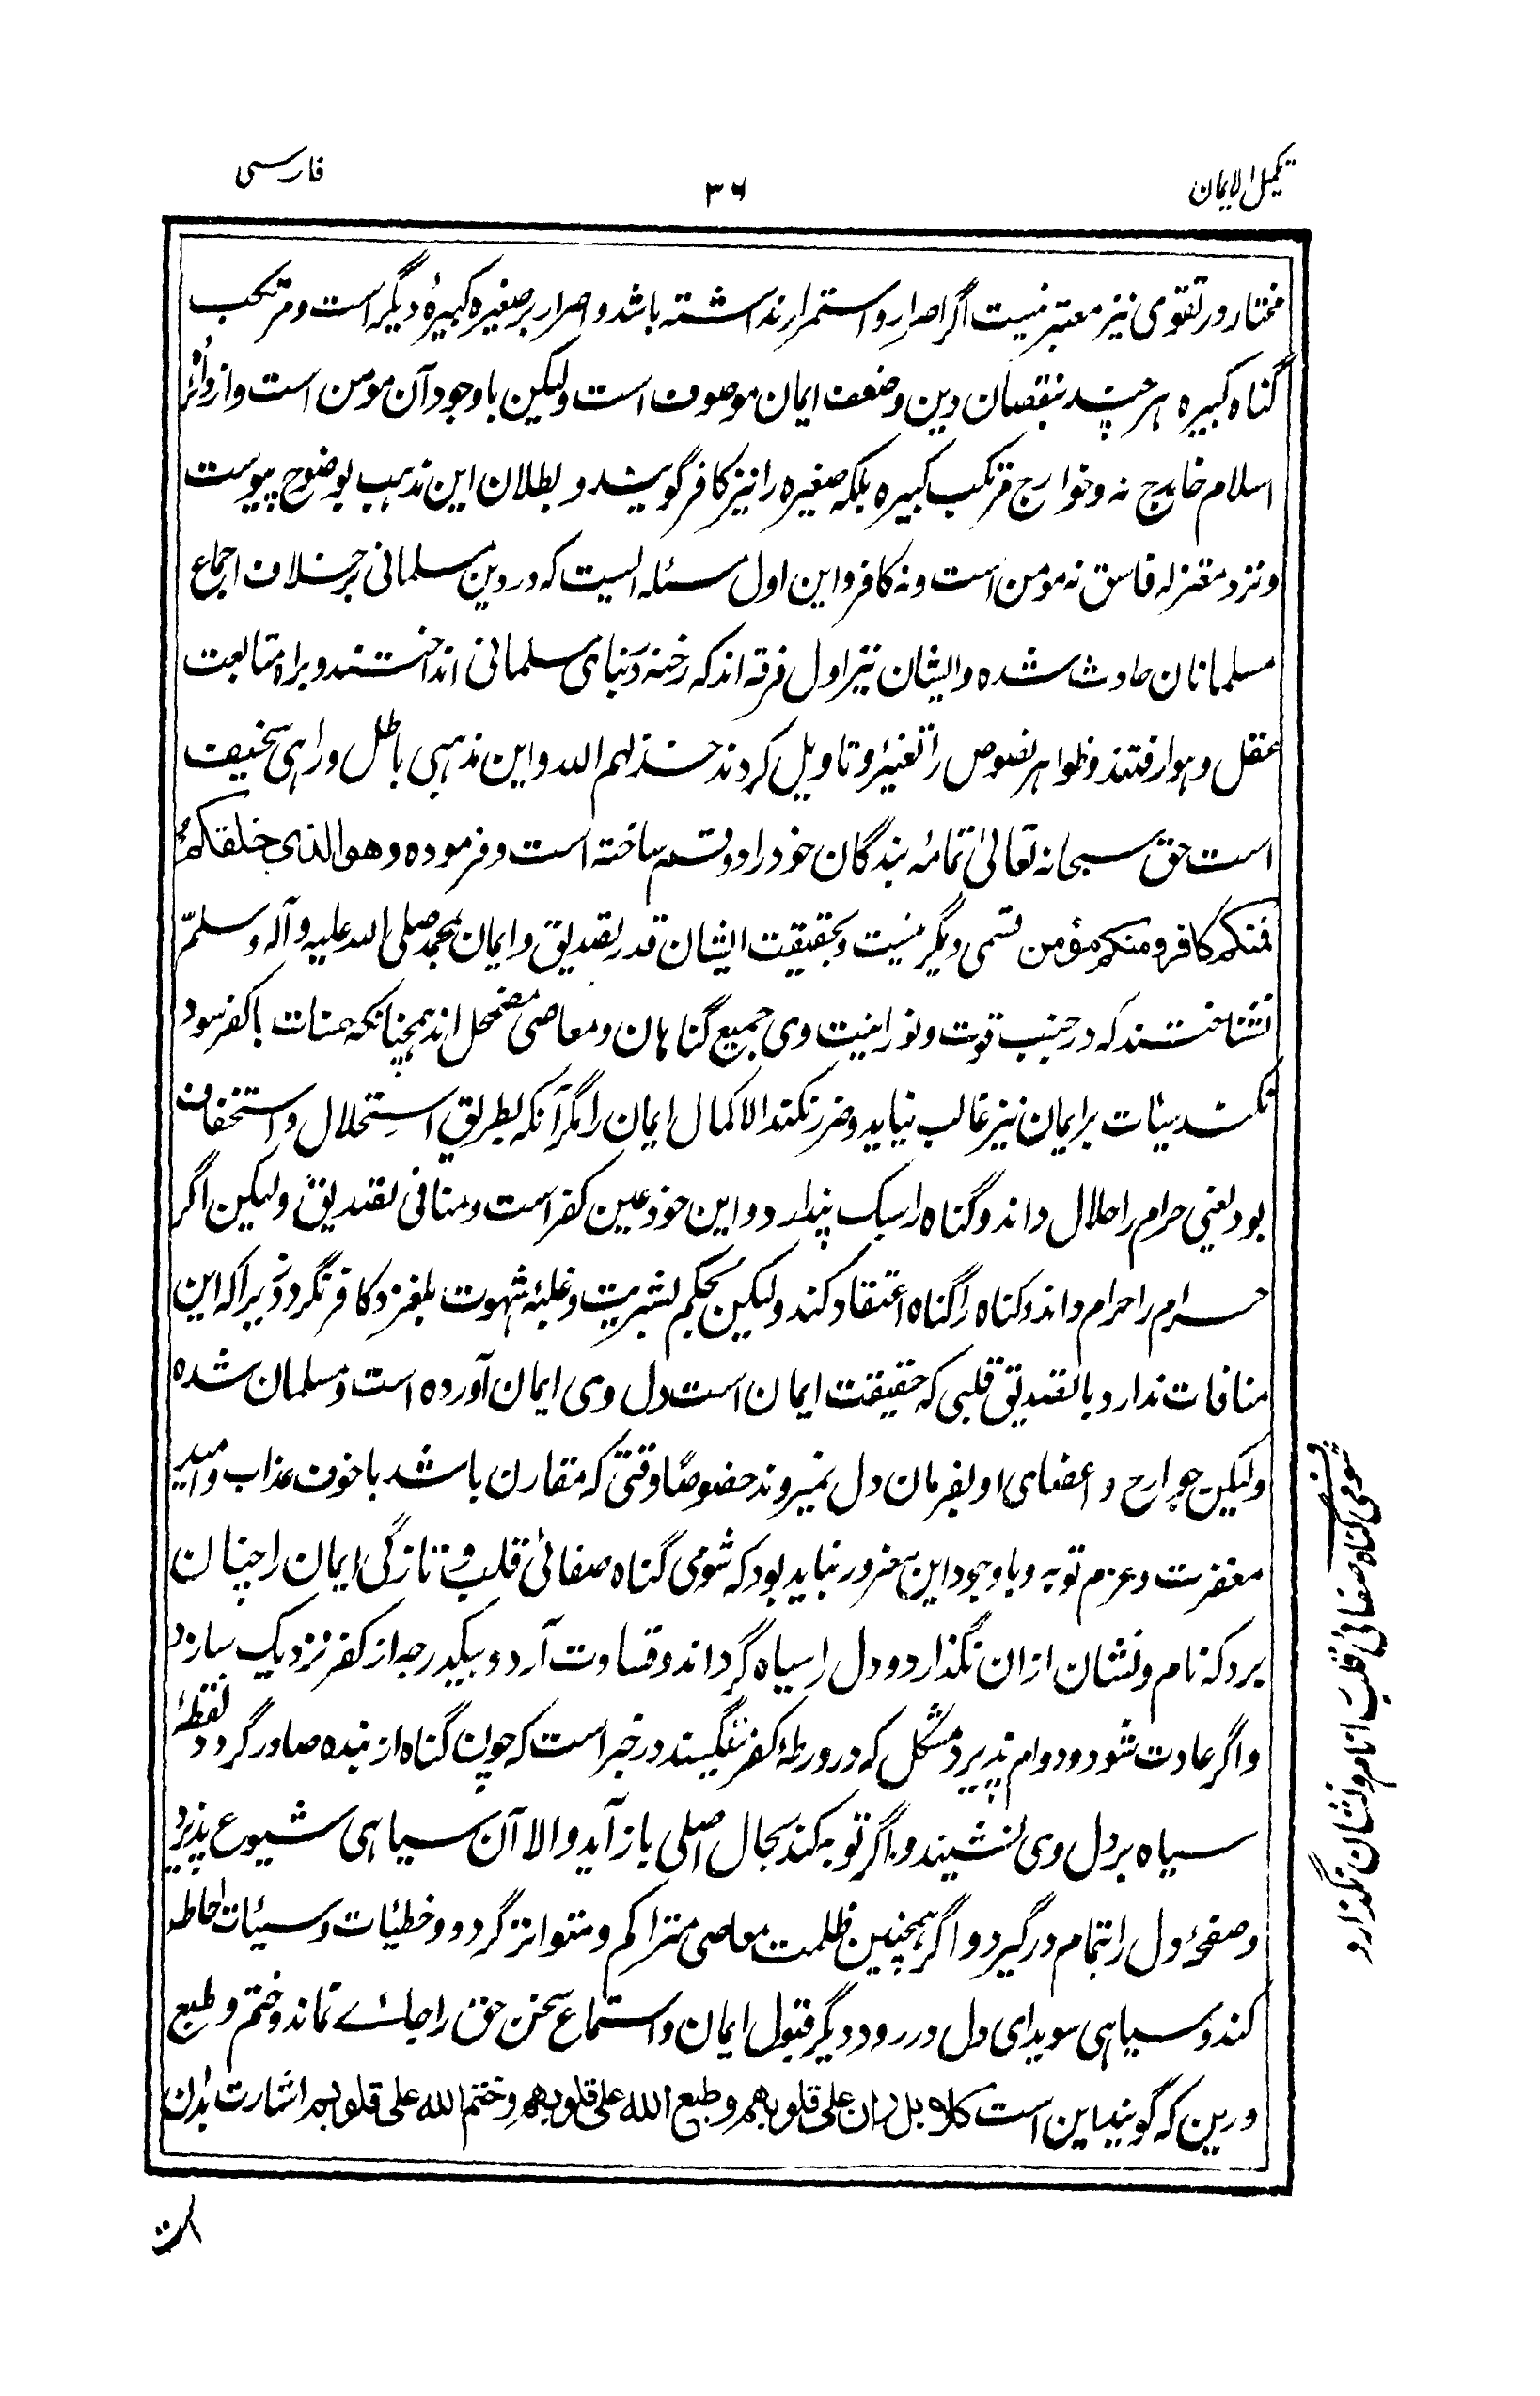 تکمیل الایمان
۳۶
فارسی
مختار در تقوی نیز معتبر نیست اگر اصرار و استمرار نداشته باشد و اصرار بر صغیره کبیرۂ دیگر است و مرتکب
گناه کبیره هر چند بنقصان دین و ضعف ایمان موصوف است ولیکن باوجود آن مومن است و از دائرۂ
اسلام خارج نه و خوارج مرتکب کبیره بلکه صغیره را نیز کافر گویند و بطلان این مذهب بوضوح پیوست
و نزد معتزله فاسق نه مومن است و نه کافر و این اول مسئله ایست که در دین مسلمانی بر خلاف اجماع
مسلمانان حادث شده و ایشان نیز اول فرقه اند که رخنه در بنای مسلمانی انداختند و براه متابعت
عقل و هوا رفتند و ظواهر نصوص را تغیّر و تاویل کردند خذلهم الله و این مذهبی باطل و راهی سخیف
است حق سبحانه تعالیٰ تمامۂ بندگان خود را دو قسم ساخته است و فرموده وهو الذی خلقکم
فمنکم کافر و منکم مؤمن قسمی دیگر نیست و بحقیقت ایشان قدر تصدیق و ایمان بمحمد صلی الله علیه و آله وسلم
نشناختند که در جنب قوت و نورانیت وی جمیع گناهان و معاصی مضمحل اند همچنانکه حسنات باکفر سود
نکند سیئات بر ایمان نیز غالب نیاید و ضرر نکند الا کمال ایمان را مگر آنکه بطریق استحلال و استخفاف
بود یعنی حرام را حلال داند و گناه را سبک پندارد و این خود عین کفر است و منافی تصدیق ولیکن اگر
حرام را حرام داند و کناه را گناه اعتقاد کند ولیکن بحکم بشریت و غلبۂ شهوت بلغزد کافر نگردد زیراکه این
منافات ندارد با تصدیق قلبی که حقیقت ایمان است دل وی ایمان آورده است و مسلمان شده
ولیکن جوارح و اعضای او بفرمان دل نمیروند خصوصًا وقتی که مقارن باشد باخوف عذاب و امید
مغفرت و عزم توبه و باوجود این مغرور نباید بود که شومی گناه صفائی قلب و تازگی ایمان را چنان
برد که نام و نشان ازان نگذارد و دل را سیاه گرداند و قساوت آرد و بیکدرجه از کفر نزدیک سازد
و اگر عادت شود و دوام پذیرد مشکل که در ورطۂ کفر نیفگند در خبر است که چون گناه از بنده صادر گردد نقطۂ
سیاه بر دل وی نشیند و اگر توبه کند بحال اصلی باز آید والا آن سیاهی شیوع پذیرد
و صفحۂ دل را بتمام درگیرد و اگر همچنین ظلمت معاصی متراکم و متواتر گردد و خطیئات و سیئات احاطه
کند و سیاهی سویدای دل در رود دیگر قبول ایمان و استماع سخن حق را جائے نماند و ختم و طبع
و رین که گویند این است کلا بل ران علی قلوبهم و طبع الله علی قلوبهم و ختم الله علی قلوبهم اشارت بدان
است
شومی گناه صفائی قلب انام و نشان نگذارد